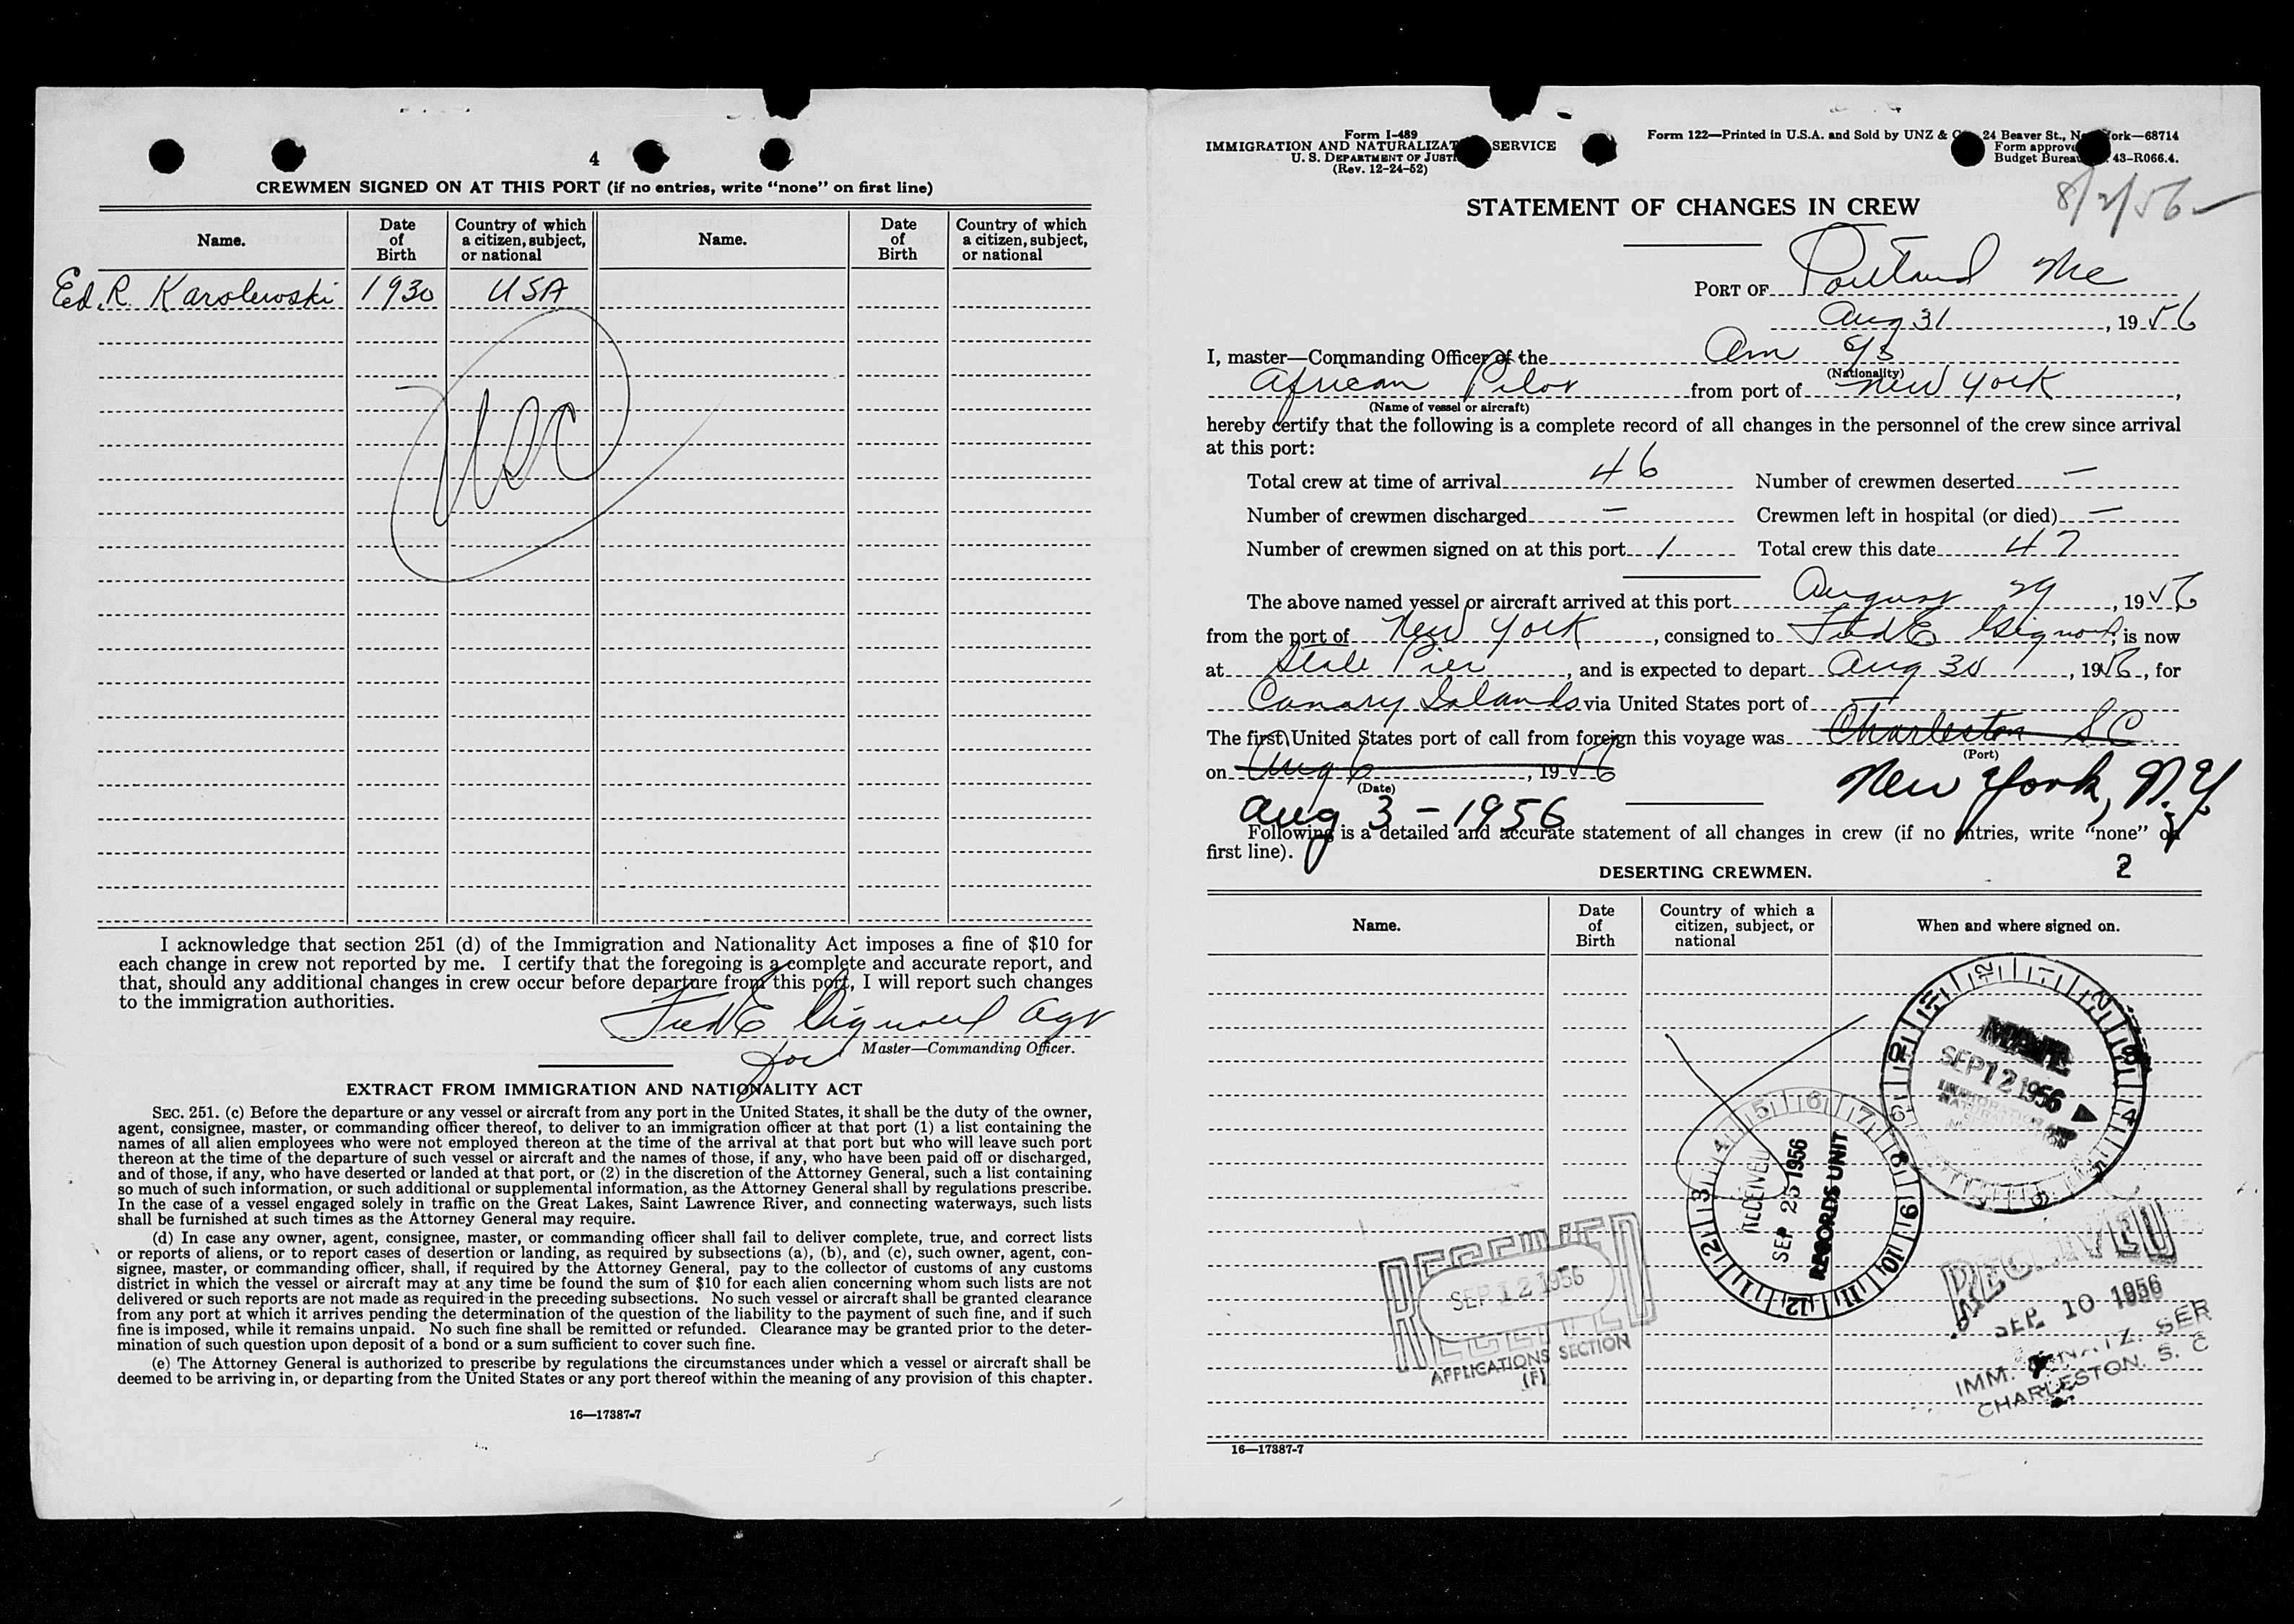 4
CREWMEN SIGNED ON AT THIS PORT (if no entries, write "none" on first line)
Name. Date of Birth Country of which a citizen, subject, or national Name. Date of Birth Country of which a citizen, subject, or national
Ed. R. Karolewski 1930 USA
USC
I acknowledge that section 251 (d) of the Immigration and Nationality Act imposes a fine of $10 for
each change in crew not reported by me. I certify that the foregoing is a complete and accurate report, and
that, should any additional changes in crew occur before departure from this port, I will report such changes
to the immigration authorities.
Fred E Gignoux Agt
for Master—Commanding Officer.
EXTRACT FROM IMMIGRATION AND NATIONALITY ACT
SEC. 251. (c) Before the departure or any vessel or aircraft from any port in the United States, it shall be the duty of the owner,
agent, consignee, master, or commanding officer thereof, to deliver to an immigration officer at that port (1) a list containing the
names of all alien employees who were not employed thereon at the time of the arrival at that port but who will leave such port
thereon at the time of the departure of such vessel or aircraft and the names of those, if any, who have been paid off or discharged,
and of those, if any, who have deserted or landed at that port, or (2) in the discretion of the Attorney General, such a list containing
so much of such information, or such additional or supplemental information, as the Attorney General shall by regulations prescribe.
In the case of a vessel engaged solely in traffic on the Great Lakes, Saint Lawrence River, and connecting waterways, such lists
shall be furnished at such times as the Attorney General may require.
(d) In case any owner, agent, consignee, master, or commanding officer shall fail to deliver complete, true, and correct lists
or reports of aliens, or to report cases of desertion or landing, as required by subsections (a), (b), and (c), such owner, agent, con-
signee, master, or commanding officer, shall, if required by the Attorney General, pay to the collector of customs of any customs
district in which the vessel or aircraft may at any time be found the sum of $10 for each alien concerning whom such lists are not
delivered or such reports are not made as required in the preceding subsections. No such vessel or aircraft shall be granted clearance
from any port at which it arrives pending the determination of the question of the liability to the payment of such fine, and if such
fine is imposed, while it remains unpaid. No such fine shall be remitted or refunded. Clearance may be granted prior to the deter-
mination of such question upon deposit of a bond or a sum sufficient to cover such fine.
(e) The Attorney General is authorized to prescribe by regulations the circumstances under which a vessel or aircraft shall be
deemed to be arriving in, or departing from the United States or any port thereof within the meaning of any provision of this chapter.
16—17387-7
Form I-489
IMMIGRATION AND NATURALIZAT SERVICE
U. S. DEPARTMENT OF JUST
(Rev. 12-24-52)
Form 122—Printed in U.S.A. and Sold by UNZ & C 24 Beaver St., N ork—68714
Form approve
Budget Burea 43-R066.4.
8/2/56
STATEMENT OF CHANGES IN CREW
PORT OF Portland Me
Aug 31, 1956
I, master—Commanding Officer of the Am S/S
(Nationality)
African Pilot from port of New York,
(Name of vessel or aircraft)
hereby certify that the following is a complete record of all changes in the personnel of the crew since arrival
at this port:
Total crew at time of arrival 46 Number of crewmen deserted —
Number of crewmen discharged — Crewmen left in hospital (or died) —
Number of crewmen signed on at this port 1 Total crew this date 47
The above named vessel or aircraft arrived at this port August 29, 1956
from the port of New York, consigned to Fred E Gignoux, is now
at State Pier, and is expected to depart Aug 30, 1956, for
Canary Islands via United States port of
The first United States port of call from foreign this voyage was Charleston SC
(Port)
on Aug 6, 1956 New York, N.Y
(Date)
Aug 3 - 1956
Following is a detailed and accurate statement of all changes in crew (if no entries, write "none" on
first line).
DESERTING CREWMEN. 2
Name. Date of Birth Country of which a citizen, subject, or national When and where signed on.
MAINE
SEP 12 1956
IMMIGRATION AND
RECEIVED
SEP 25 1956
RECORDS UNIT
RECEIVED
SEP 12 1956
APPLICATIONS SECTION
(F)
RECEIVED
SEP 10 1956
IMM. & NATZ. SER
CHARLESTON, S. C
16—17387-7